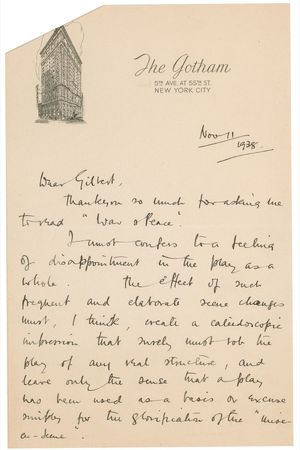 The Gotham
5TH AVE. AT 55TH ST.
NEW YORK CITY
Nov 11
1938.
Dear Gilbert,
Thank you so much for asking me
to read "War & Peace".
I must confess to a feeling
of disappointment in the play as a
whole. The effect of such
frequent and elaborate scene changes
must, I think, create a caleidoscopic
impression that surely must rob the
play of any real structure, and
leave only the sense that a play
has been used as a basis or excuse
simply for the glorification of the "mise
en-scene".